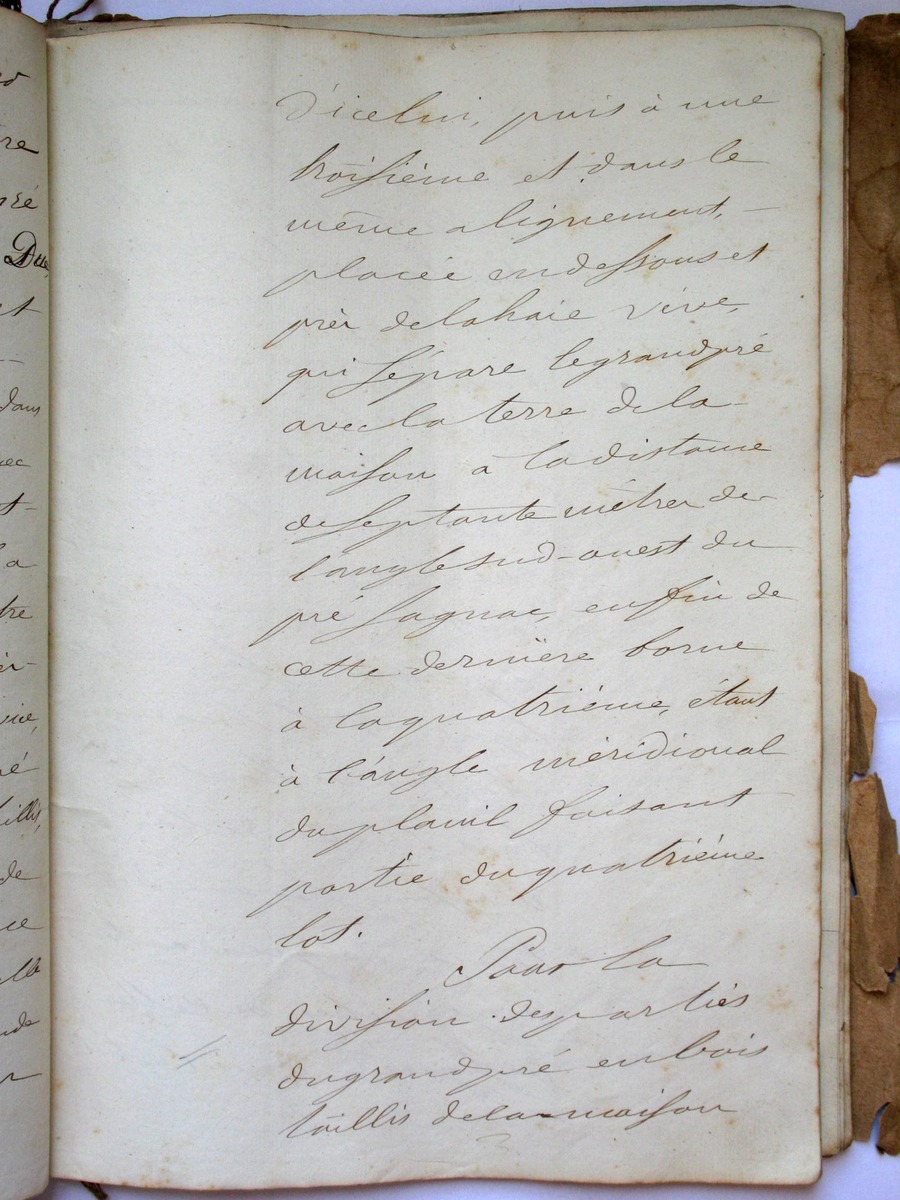 d'icelui, puis à une
troisième et dans le
même alignement, -
placée en dessous et
près de la haie vive,
qui sépare le grand pré
avec la terre de la -
maison à la distance
de septante mètres de -
l'angle sud-ouest du
pré Sagnac, enfin de
cette dernière borne
à la quatrième, étant
à l'angle méridional
du plauil faisant
partie du quatrième
lot.
Pour la
division des parties
du grand pré en bois
taillis de la maison